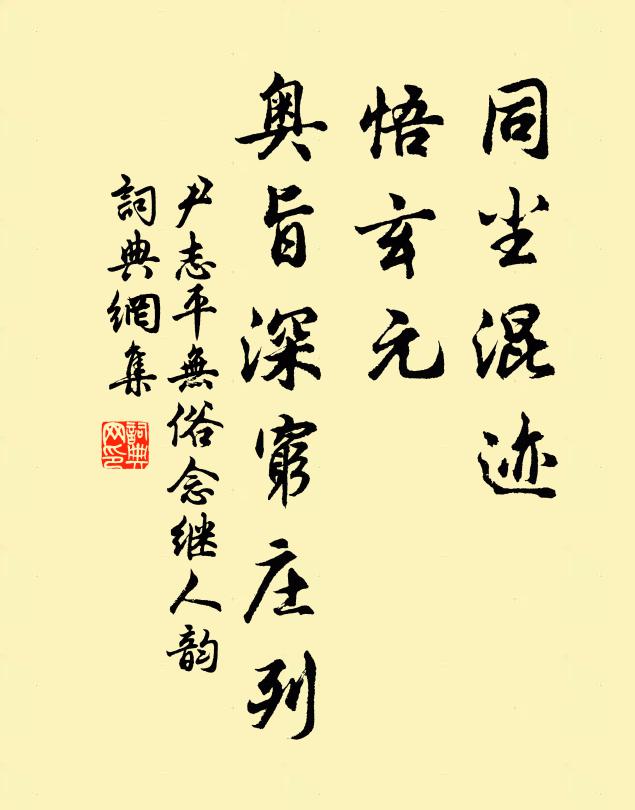 同尘混迹
悟玄元
奥旨深穷庄列
尹志平無俗念继人韵
詞典網集
詞典
网印